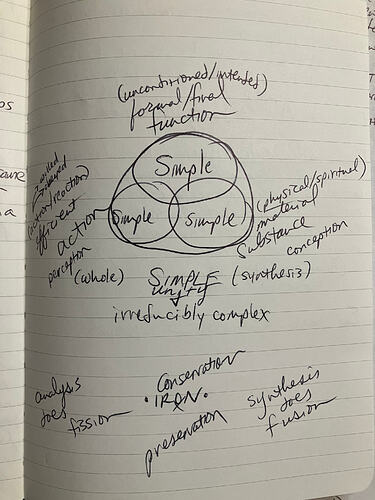 (unconditioned/intended)
formal/final
function
Simple
Simple
Simple
(action/reaction)
efficient
action
perception
(physical/spiritual)
material
substance
conception
(whole)
SIMPLE
unity
(synthesis)
irreducibly complex
analysis
does
fission
Conservation
• IRON •
preservation
synthesis
does
fusion